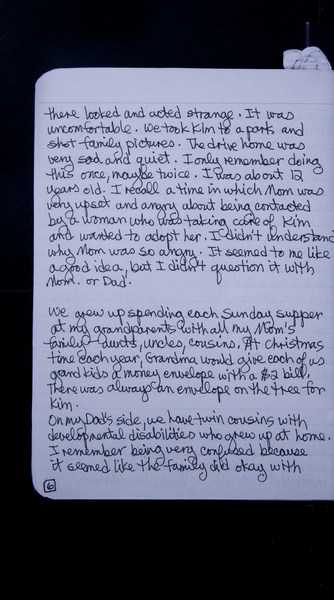 there looked and acted strange. It was
uncomfortable. We took Kim to a park and
shot family pictures. The drive home was
very sad and quiet. I only remember doing
this once, maybe twice. I was about 12
years old. I recall a time in which Mom was
very upset and angry about being contacted
by a woman who was taking care of Kim
and wanted to adopt her. I didn't understand
why Mom was so angry. It seemed to me like
a good idea, but I didn't question it with
Mom. or Dad.
We grew up spending each Sunday supper
at my grandparents with all my Mom's
family - aunts, uncles, cousins. At Christmas
time each year, Grandma would give each of us
grandkids a money envelope with a $2 bill.
There was always an envelope on the tree for
Kim.
On my Dad's side, we have twin cousins with
developmental disabilities who grew up at home.
I remember being very confused because
it seemed like the family did okay with
6